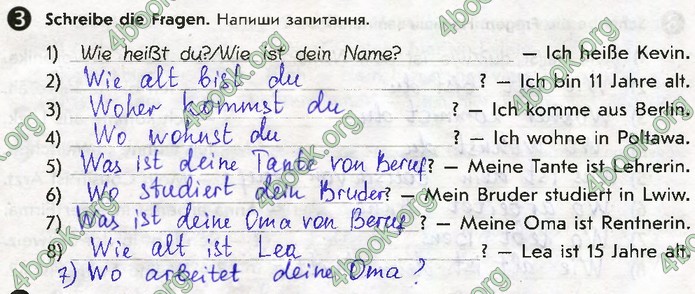 3 Schreibe die Fragen. Напиши запитання.
1) Wie heißt du?/Wie ist dein Name? – Ich heiße Kevin.
2) Wie alt bist du ? – Ich bin 11 Jahre alt.
3) Woher kommst du ? – Ich komme aus Berlin.
4) Wo wohnst du ? – Ich wohne in Poltawa.
5) Was ist deine Tante von Beruf? – Meine Tante ist Lehrerin.
6) Wo studiert dein Bruder? – Mein Bruder studiert in Lwiw.
7) Was ist deine Oma von Beruf ? – Meine Oma ist Rentnerin.
8) Wie alt ist Lea ? – Lea ist 15 Jahre alt.
7) Wo arbeitet deine Oma ?
4book.org
4book.org
4book.org
4book.org
4book.org
4book.org
4book.org